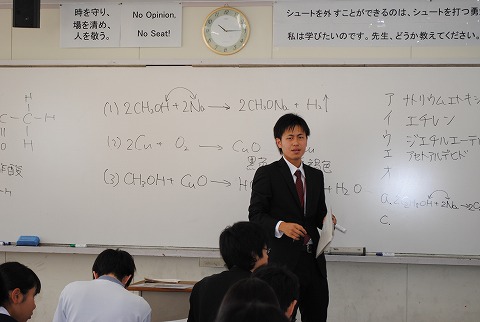 時を守り、
場を清め、
人を敬う。
No Opinion,
No Seat!
シュートを外すことができるのは、シュートを打つ勇
私は学びたいのです。先生、どうか教えてください。
H
C-C-H
O H
(1) 2CH₃OH + 2Na → 2CH₃ONa + H₂↑
(2) 2Cu + O₂ → CuO
黒色
(3) CH₃OH + CuO → H
H₂O
ア ナトリウムエトキシ
イ エチレン
ウ ジエチルエーテル
エ アセトアルデヒド
オ
a.
C.